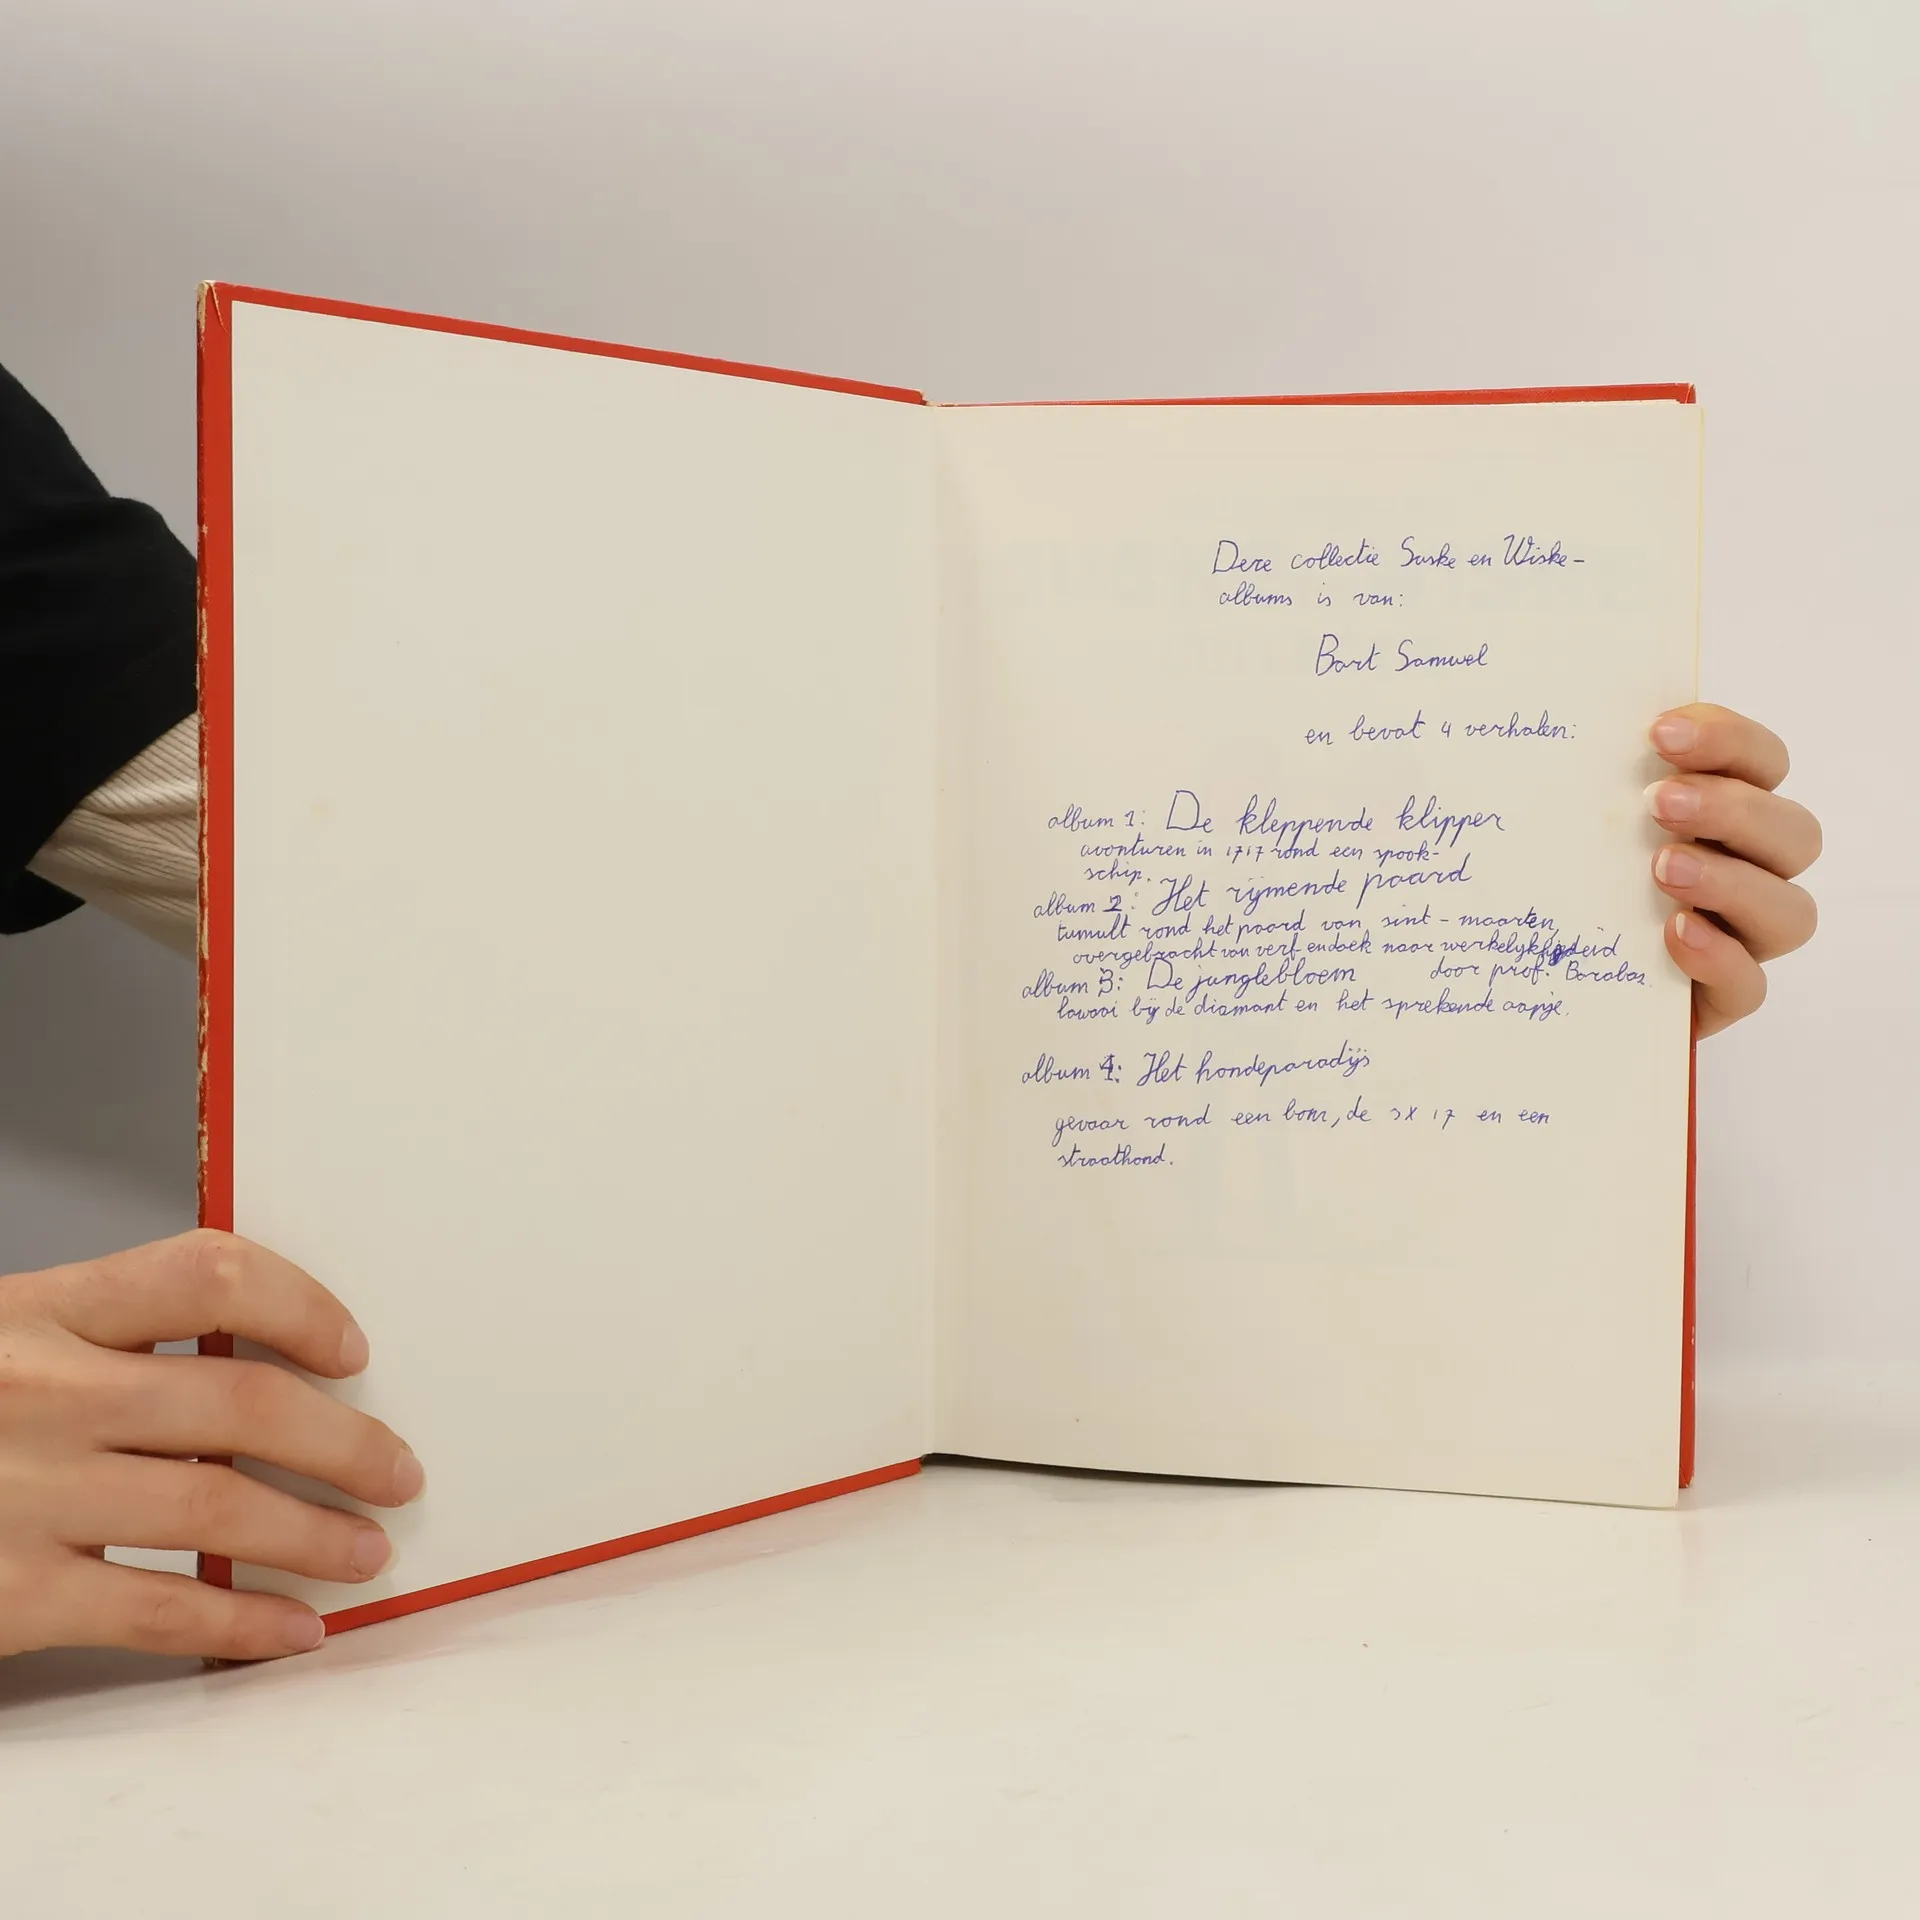 Deze collectie Suske en Wiske-
albums is van:
Bart Samwel
en bevat 4 verhalen:
album 1: De kleppende klipper
avonturen in 1717 rond een spook-
schip.
album 2: Het rijmende paard
tumult rond het paard van sint-maarten,
overgebracht van verf en doek naar werkelijkheid
door prof. Barabas.
album 3: De junglebloem
lawaai bij de diamant en het sprekende aapje.
album 4: Het hondeparadijs
gevaar rond een bom, de 3 x 17 en een
straathond.